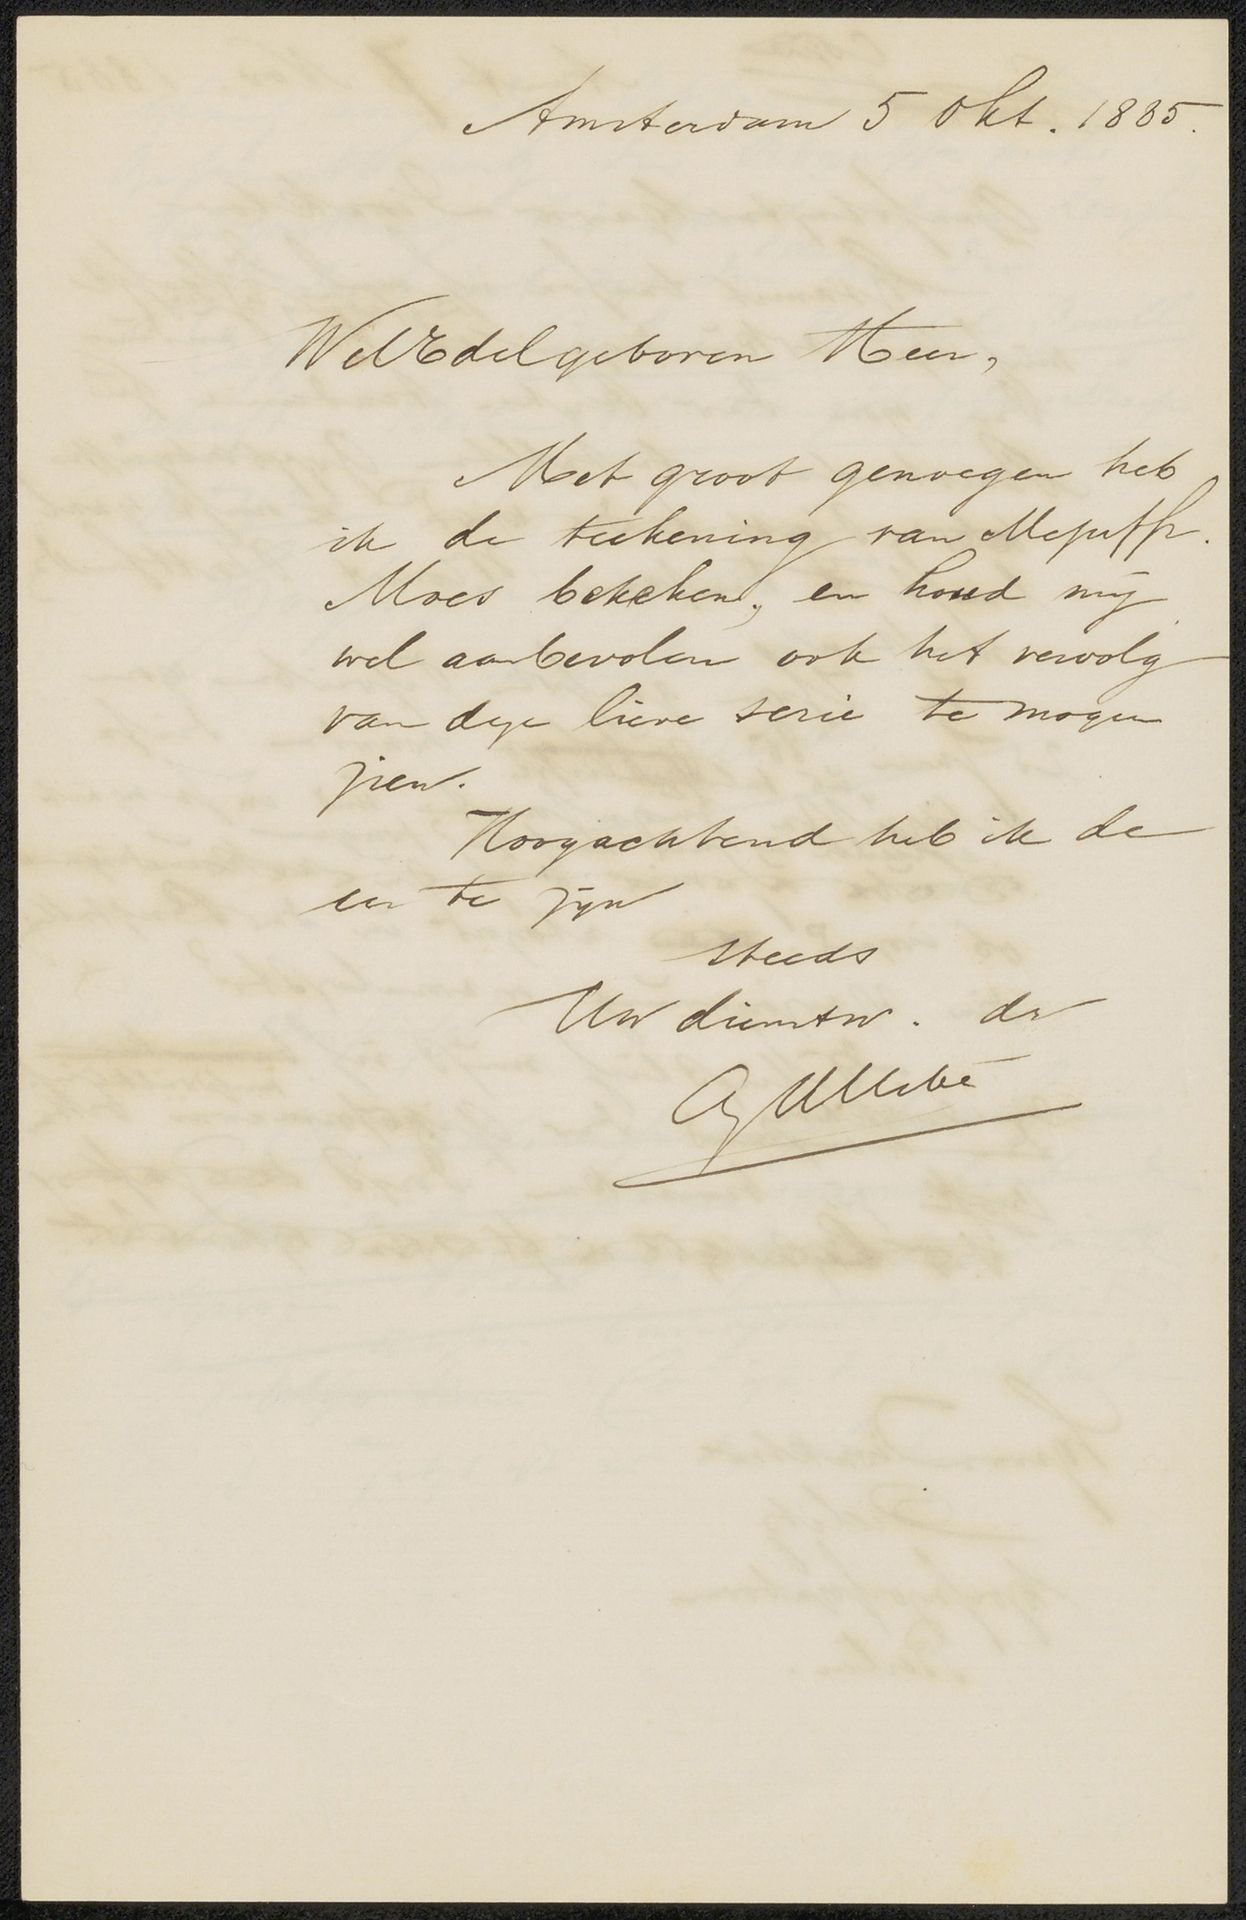 Amsterdam 5 Okt. 1885.
WelEdelgeboren Heer,
Met groot genoegen heb
ik de teekening van Mejuffr.
Moes bekeken, en houd mij
wel aanbevolen ook het vervolg
van deze lieve serie te mogen
zien.
Hoogachtend heb ik de
eer te zijn
steeds
Uw dienstw. dr
AJ Allebé